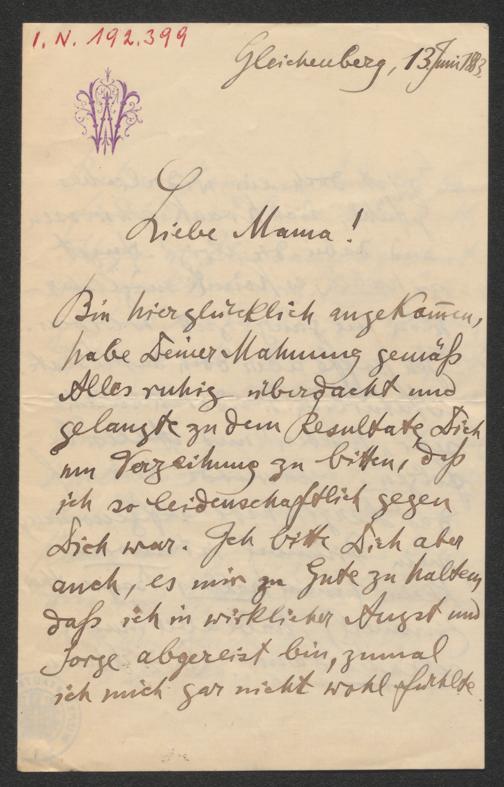 I. N. 192.399
Gleichenberg, 13. Juni 1883.
Liebe Mama!
Bin hier glücklich angekom̅en,
habe Deiner Mahnung gemäß
Alles ruhig überdacht und
gelangte zu dem Resultate, Dich
um Verzeihung zu bitten, daß
ich so leidenschaftlich gegen
Dich war. Ich bitte Dich aber
auch, es mir zu Gute zu halten,
daß ich in wirklicher Angst und
Sorge abgereist bin, zumal
ich mich gar nicht wohl fühlte